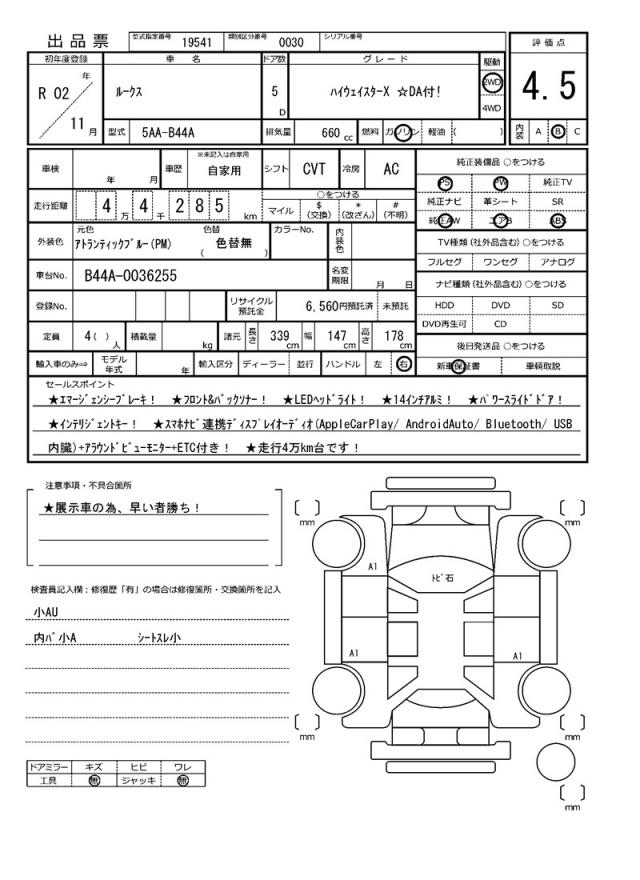 出品票 型式指定番号 19541 類別区分番号 0030 シリアル番号
初年度登録 車名 ドア数 グレード 駆動 評価点
R 02 年 11 月 ルークス 5 D ハイウェイスターX ☆DA付！ 2WD 4WD 4.5
型式 5AA-B44A 排気量 660 cc 燃料 ガソリン 軽油 ( ) 内装 A B C
車検 年 月 車歴 ※未記入は自家用 自家用 シフト CVT 冷房 AC 純正装備品 ○をつける
PS PW 純正TV
走行距離 4 万 4 千 2 8 5 km ○をつける マイル $ (交換) * (改ざん) # (不明) 純正ナビ 革シート SR
純正AW エアB ABS
外装色 元色 アトランティックブルー(PM) 色替 色替無 ( ) カラーNo. 内装色 TV種類 (社外品含む) ○をつける
フルセグ ワンセグ アナログ
車台No. B44A-0036255 名変期限 月 日 ナビ種類 (社外品含む) ○をつける
登録No. リサイクル預託金 6,560円預託済 未預託 HDD DVD SD
DVD再生可 CD
定員 4( ) 人 積載量 kg 諸元 長さ 339 cm 幅 147 cm 高さ 178 cm 後日発送品 ○をつける
輸入車のみ⇒ モデル年式 年 輸入区分 ディーラー 並行 ハンドル 左 右 新車保証書 車輌取説
セールスポイント
★エマージェンシーブレーキ！ ★フロント&バックソナー！ ★LEDヘッドライト！ ★14インチアルミ！ ★パワースライドドア！
★インテリジェントキー！ ★スマホナビ連携ディスプレイオーディオ(AppleCarPlay/ AndroidAuto/ Bluetooth/ USB
内臓)+アラウンドビューモニター+ETC付き！ ★走行4万km台です！
注意事項・不具合箇所
★展示車の為、早い者勝ち！
検査員記入欄：修復歴「有」の場合は修復箇所・交換箇所を記入
小AU
内バ小A シートスレ小
ドアミラー キズ ヒビ ワレ
工具 無 ジャッキ 無
〔 〕 mm 〔 〕 mm
A1 トビ石
A1 A1
〔 〕 mm 〔 〕 mm
〔 〕 mm